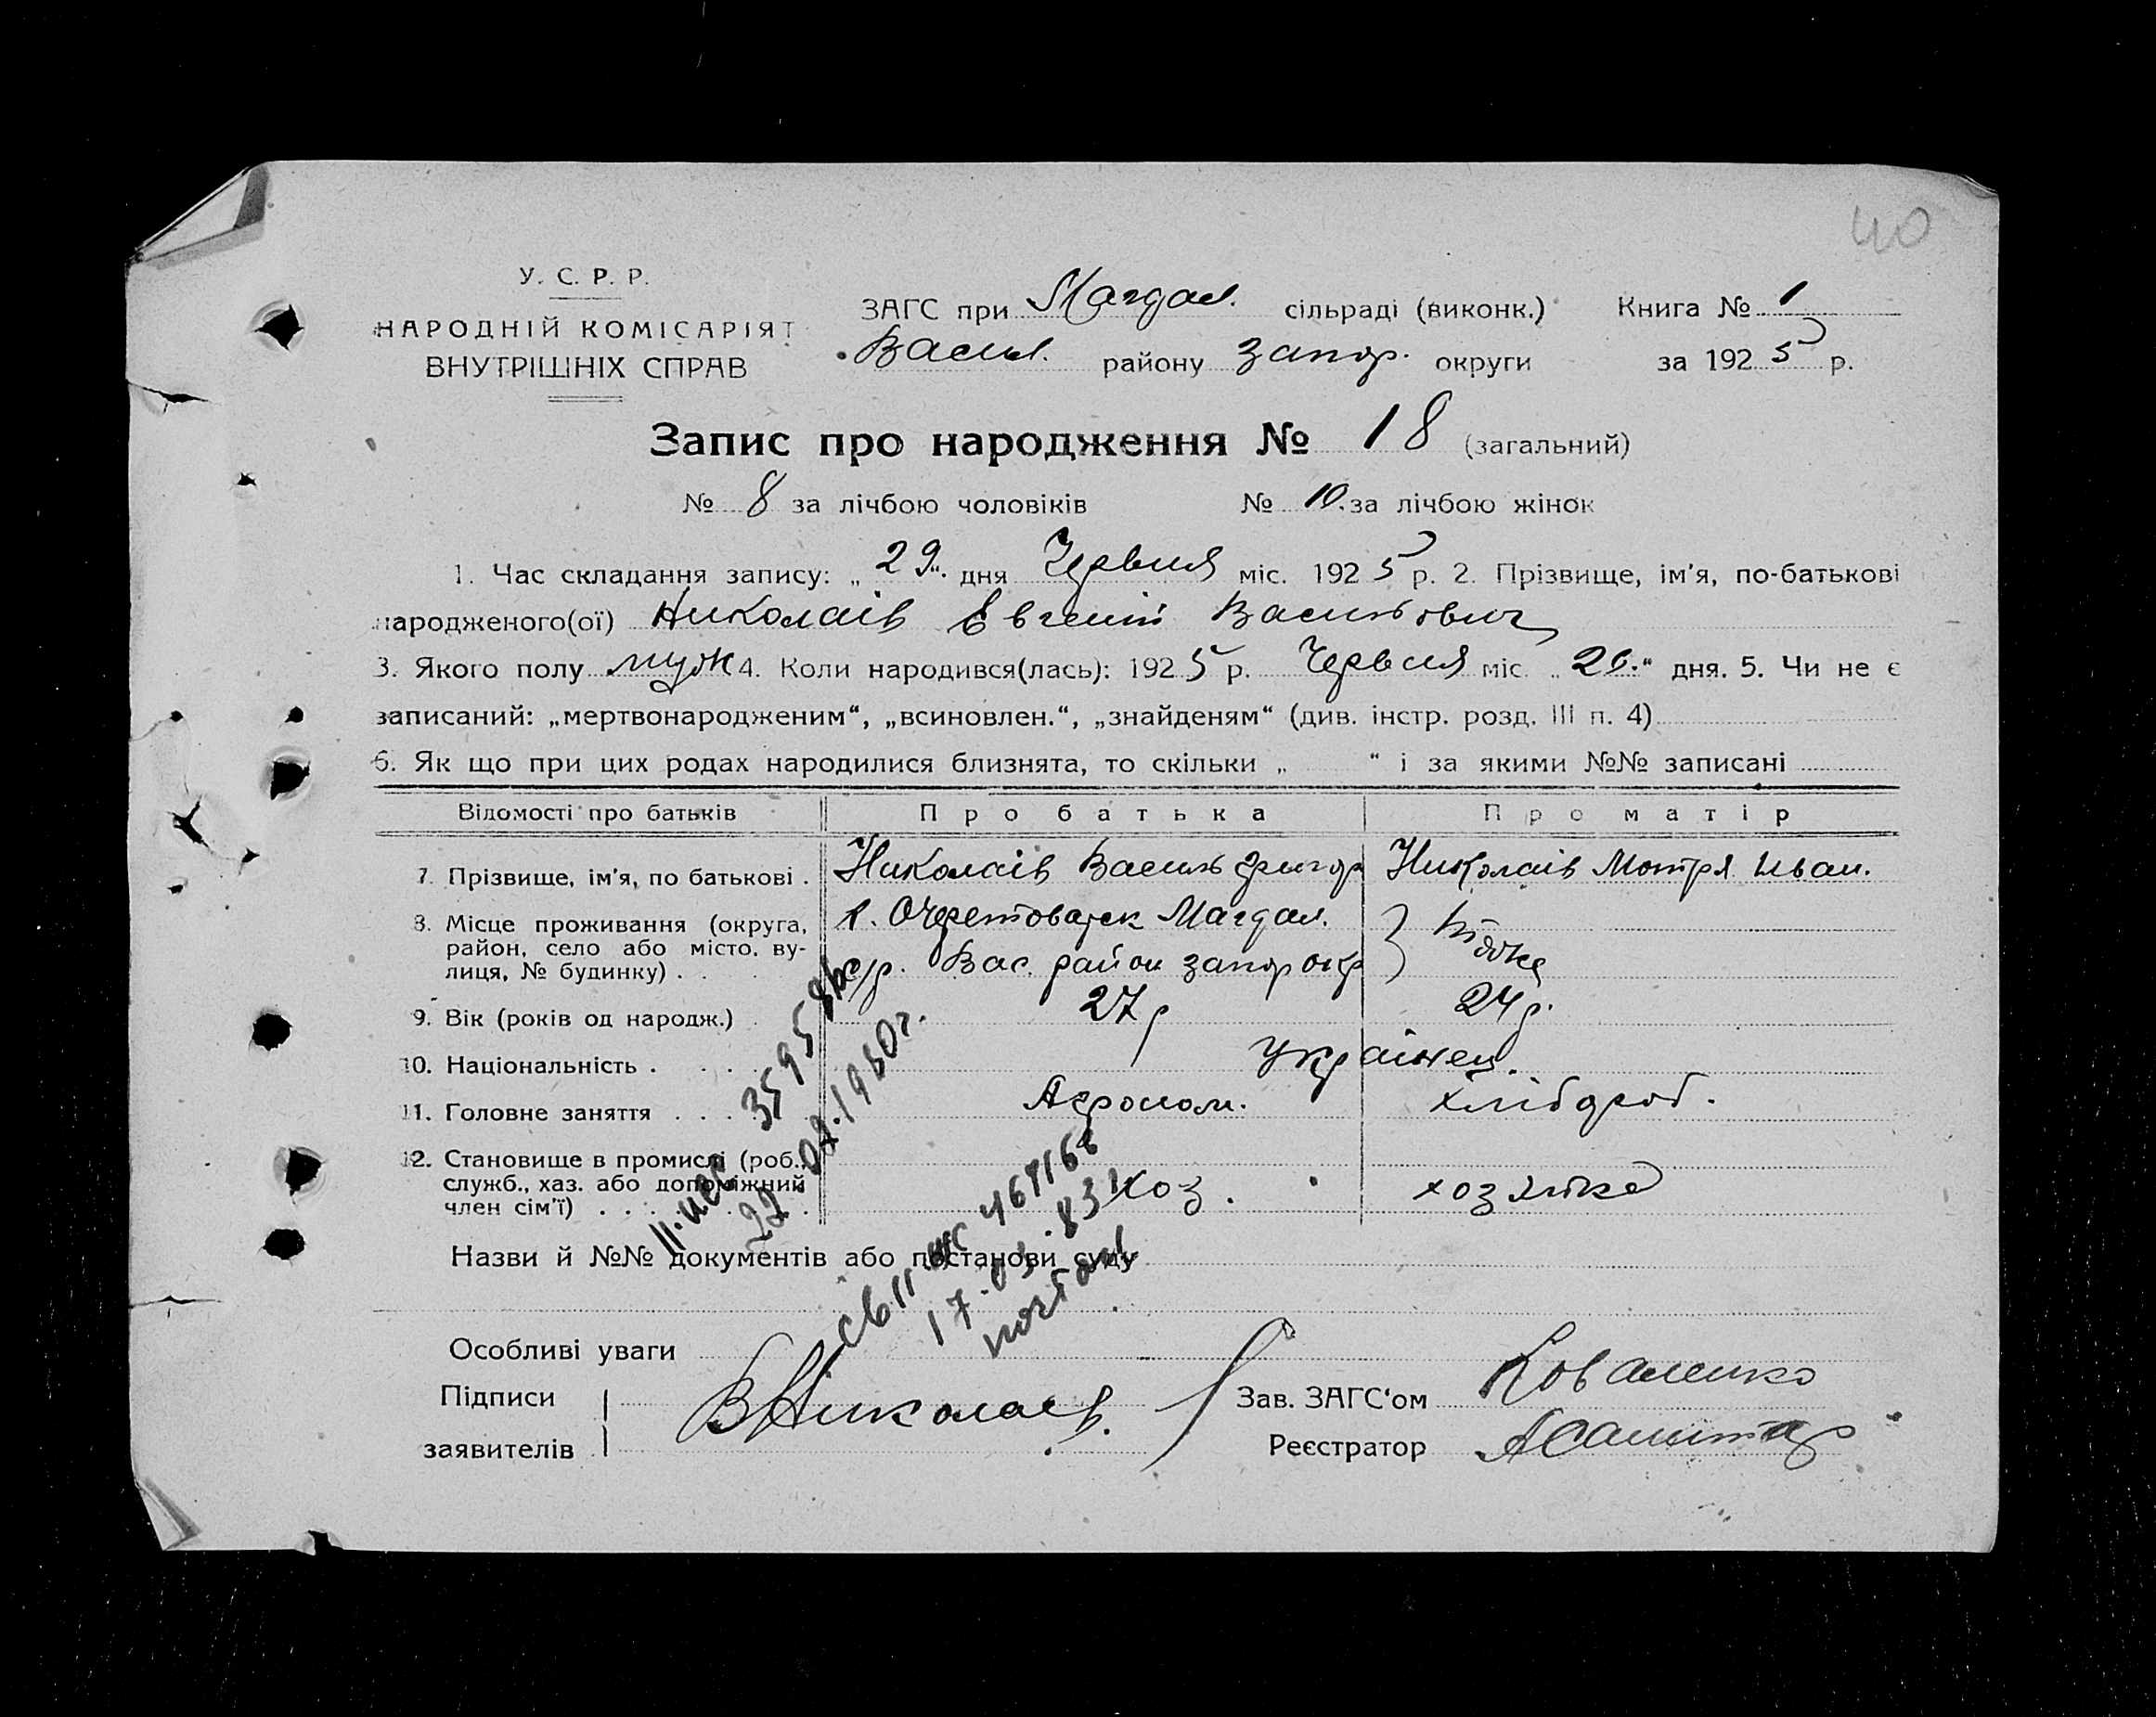 40
У. С. Р. Р.
НАРОДНІЙ КОМІСАРІЯТ
ВНУТРІШНІХ СПРАВ
ЗАГС при Магдал. сільраді (виконк.) Книга № 1
Васил. району Запор. округи за 1925 р.
Запис про народження № 18 (загальний)
№ 8 за лічбою чоловіків № 10. за лічбою жінок
1. Час складання запису: „29“ дня Червня міс. 1925 р. 2. Прізвище, ім'я, по-батькові
народженого(ої) Николаів Евгений Васильович
3. Якого полу муж 4. Коли народився(лась): 1925 р. Червня міс. „26.“ дня. 5. Чи не є
записаний: „мертвонародженим“, „всиновлен.“, „знайденям“ (див. інстр. розд. III п. 4)
6. Як що при цих родах народилися близнята, то скільки „ “ і за якими №№ записані
Відомості про батьків Про батька Про матір
7. Прізвище, ім'я, по батькові . Николаів Василь Григор Николаів Мотря Иван.
8. Місце проживання (округа, район, село або місто, вулиця, № будинку) . . Магдал.
Вас. район запор окр
9. Вік (років од народж.) . 27 р 24 р.
10. Національність . . . . Українец.
11. Головне заняття . . . Агроном. хлібороб.
12. Становище в промислі (роб.,
служб., хаз. або допоміжний
член сім'ї) . . . . . . . хоз. хозяйка
Назви й №№ документів або постанови суду
17.03.83
Особливі уваги
Підписи
заявителів ВНиколаев.
Зав. ЗАГС'ом Коваленко
Реєстратор